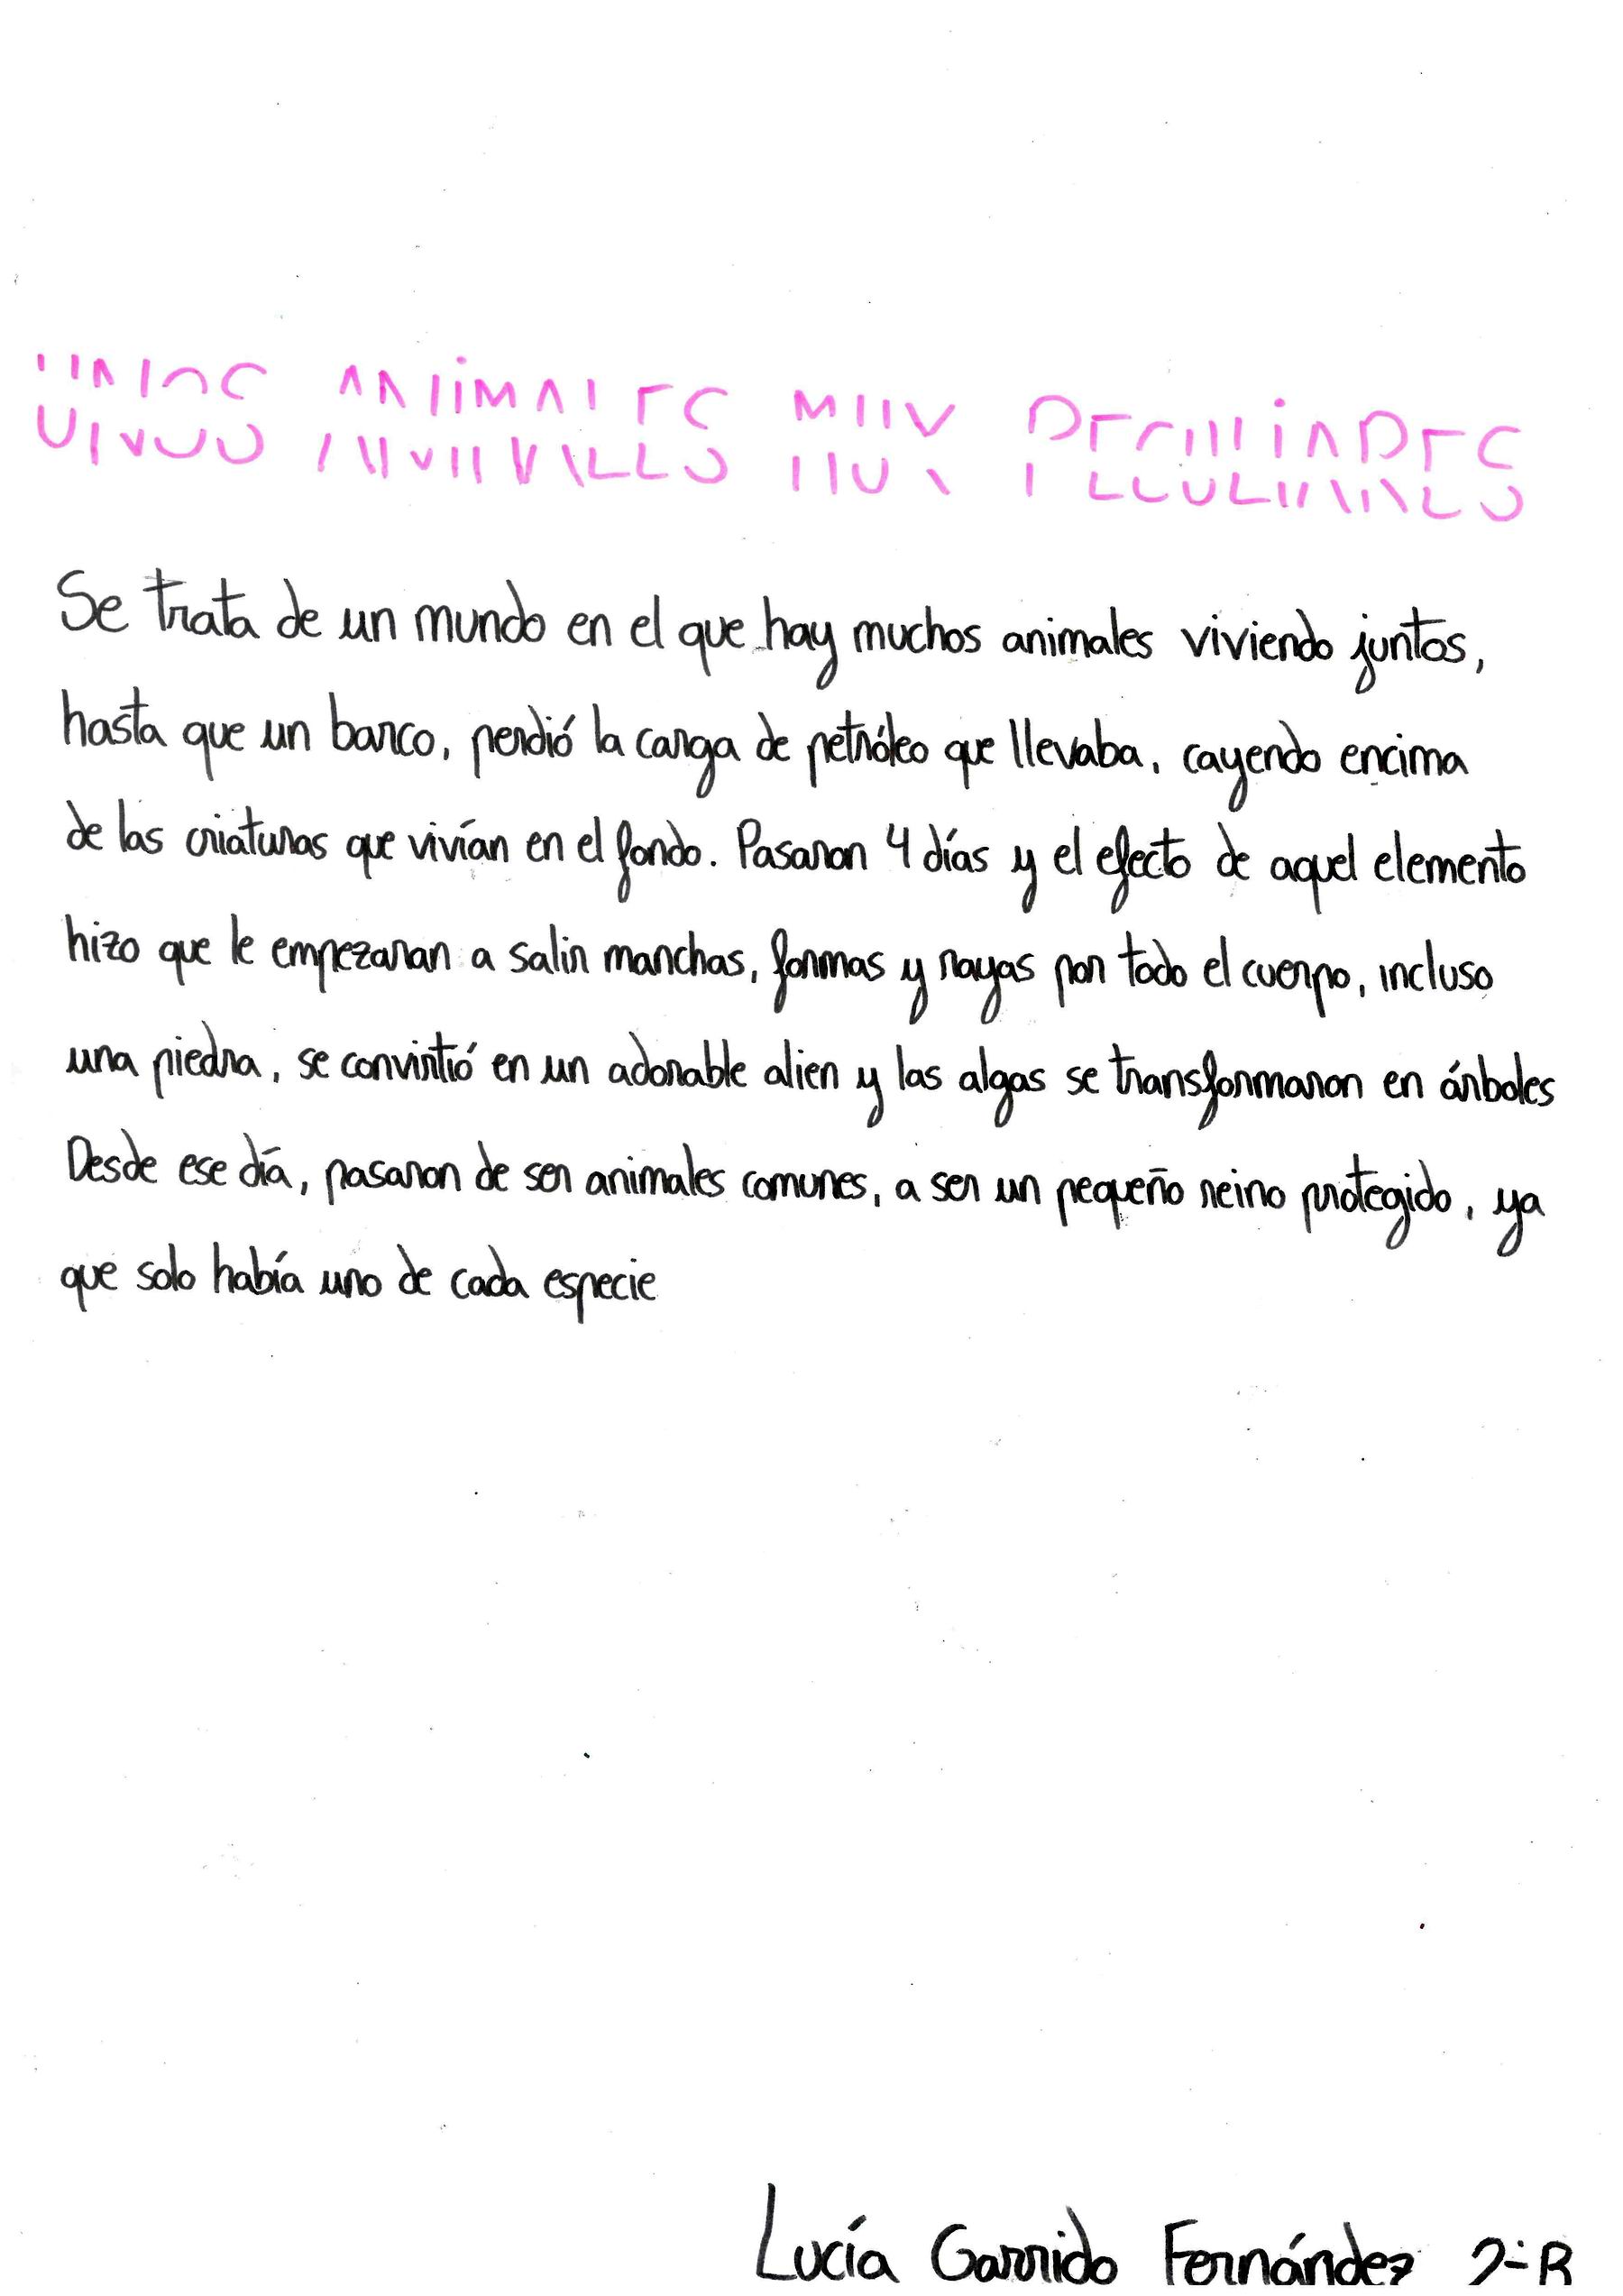 UNOS ANIMALES MUY PECULIARES
Se trata de un mundo en el que hay muchos animales viviendo juntos,
hasta que un barco, perdió la carga de petróleo que llevaba, cayendo encima
de las criaturas que vivían en el fondo. Pasaron 4 días y el efecto de aquel elemento
hizo que le empezaran a salir manchas, formas y rayas por todo el cuerpo, incluso
una piedra, se convirtió en un adorable alien y las algas se transformaron en árboles
Desde ese día, pasaron de ser animales comunes, a ser un pequeño reino protegido, ya
que solo había uno de cada especie
Lucía Garrido Fernández 2-B